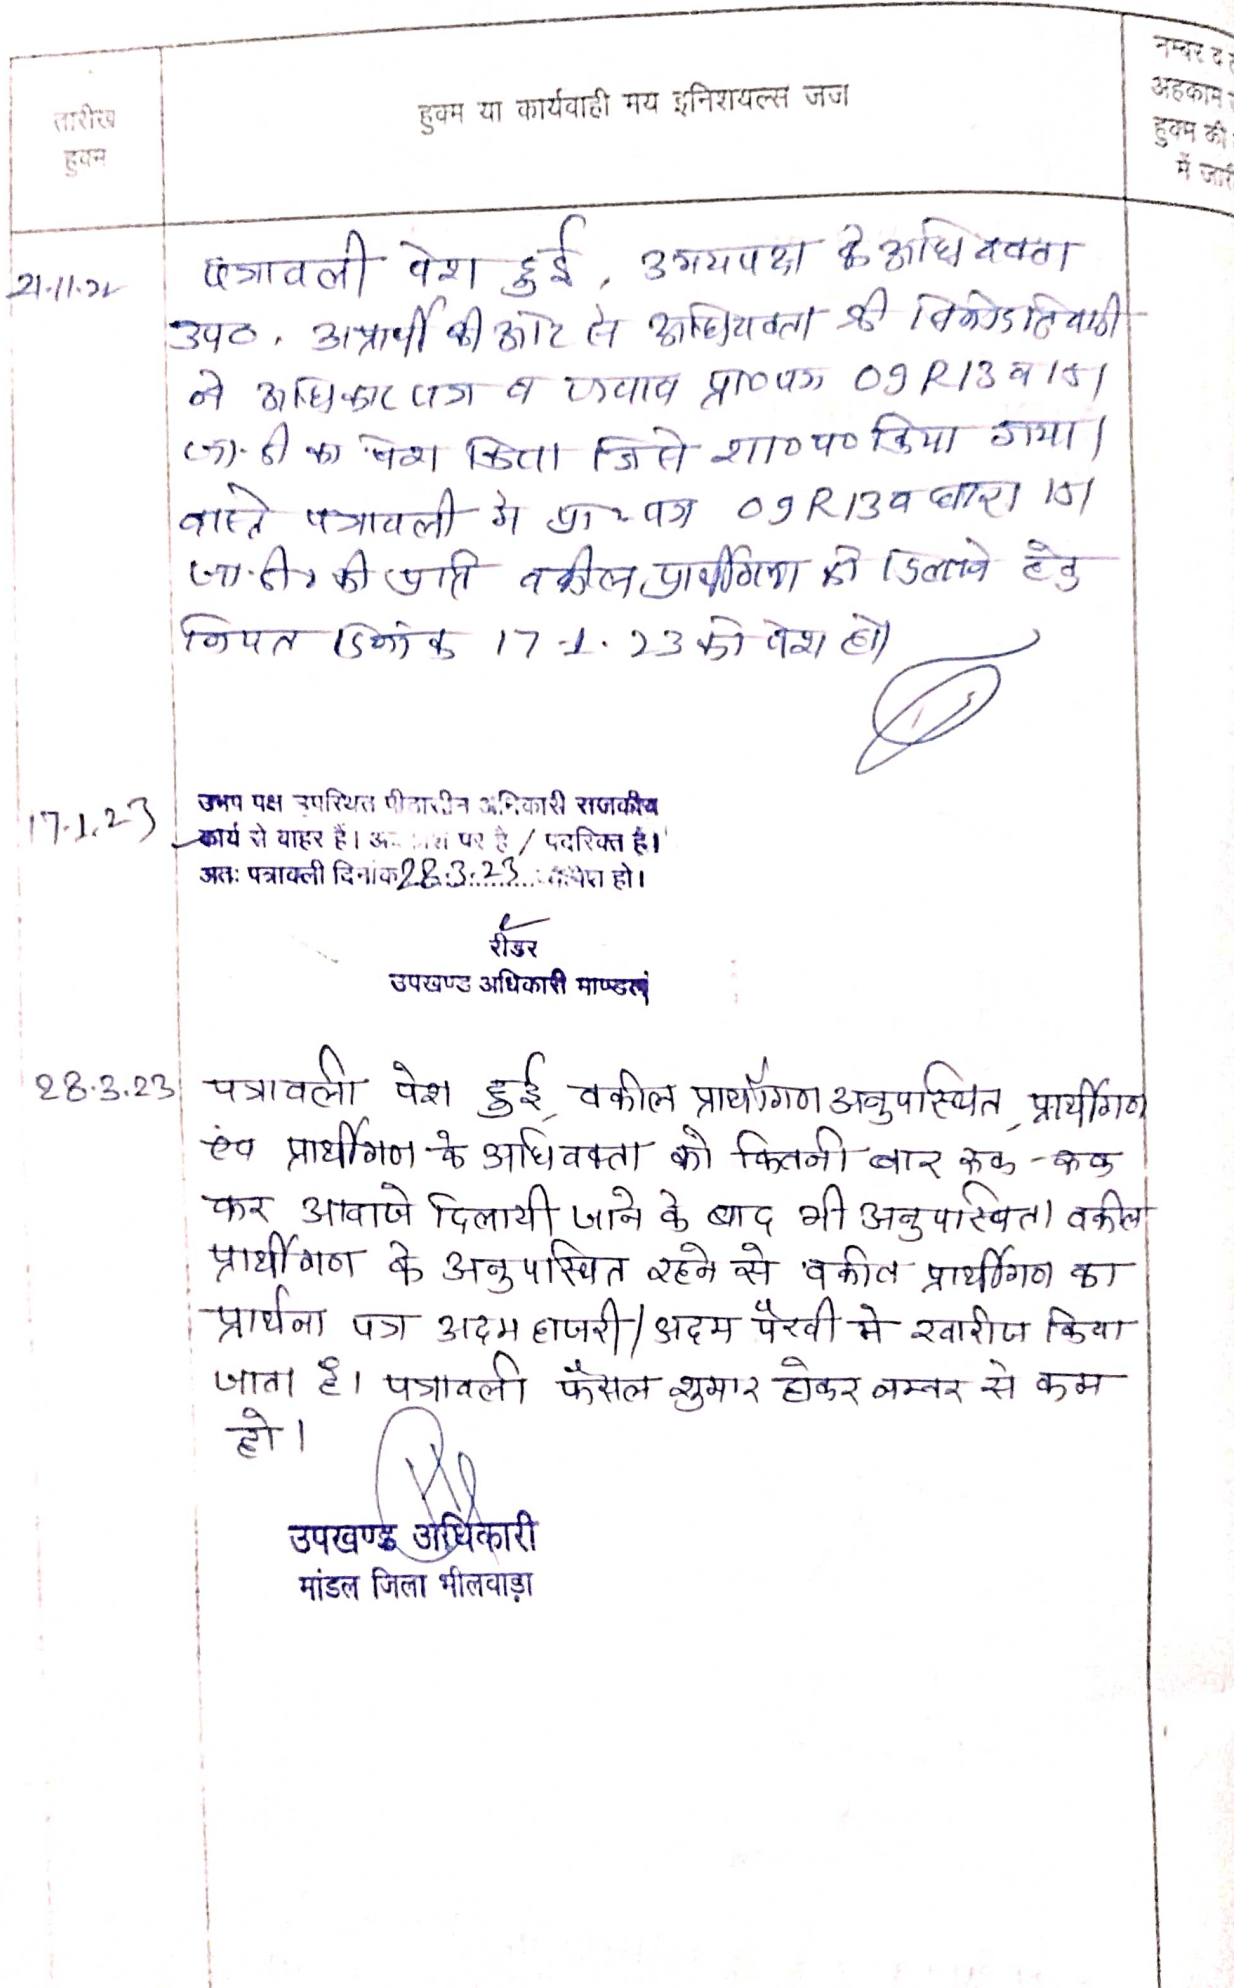 तारीख
हुक्म
हुक्म या कार्यवाही मय इनिशयल्स जज
नम्बर व
अहकाम
हुक्म की
में जारी
21.11.22
पत्रावली पेश हुई, उभयपक्ष के अधिवक्ता
उप०. अप्रार्थी की ओर से अधिवक्ता श्री
ने अधिकार पत्र व जवाब प्रा०पत्र 09 R 13 व 151
जा.दी का पेश किया जिसे शा०प० किया गया।
वास्ते पत्रावली में प्रा० पत्र 09 R 13 व धारा 151
जा.दी. की प्रति वकील प्रार्थीगण को दिलाने हेतु
नियत दिनांक 17.1.23 को पेश हो।
17.1.23
उभय पक्ष उपस्थित पीठासीन अधिकारी राजकीय
कार्य से बाहर हैं। पर है / पदरिक्त है।
अतः पत्रावली दिनांक 28.3.23 को पेश हो।
रीडर
उपखण्ड अधिकारी माण्डल
28.3.23
पत्रावली पेश हुई, वकील प्रार्थीगण अनुपस्थित, प्रार्थीगण
एंव प्रार्थीगण के अधिवक्ता को कितनी बार रूक-रूक
कर आवाजे दिलायी जाने के बाद भी अनुपस्थित। वकील
प्रार्थीगण के अनुपस्थित रहने से वकील प्रार्थीगण का
प्रार्थना पत्र अदम हाजरी/अदम पैरवी मे खारीज किया
जाता है। पत्रावली फैसल शुमार होकर नम्बर से कम
हो।
उपखण्ड अधिकारी
मांडल जिला भीलवाड़ा